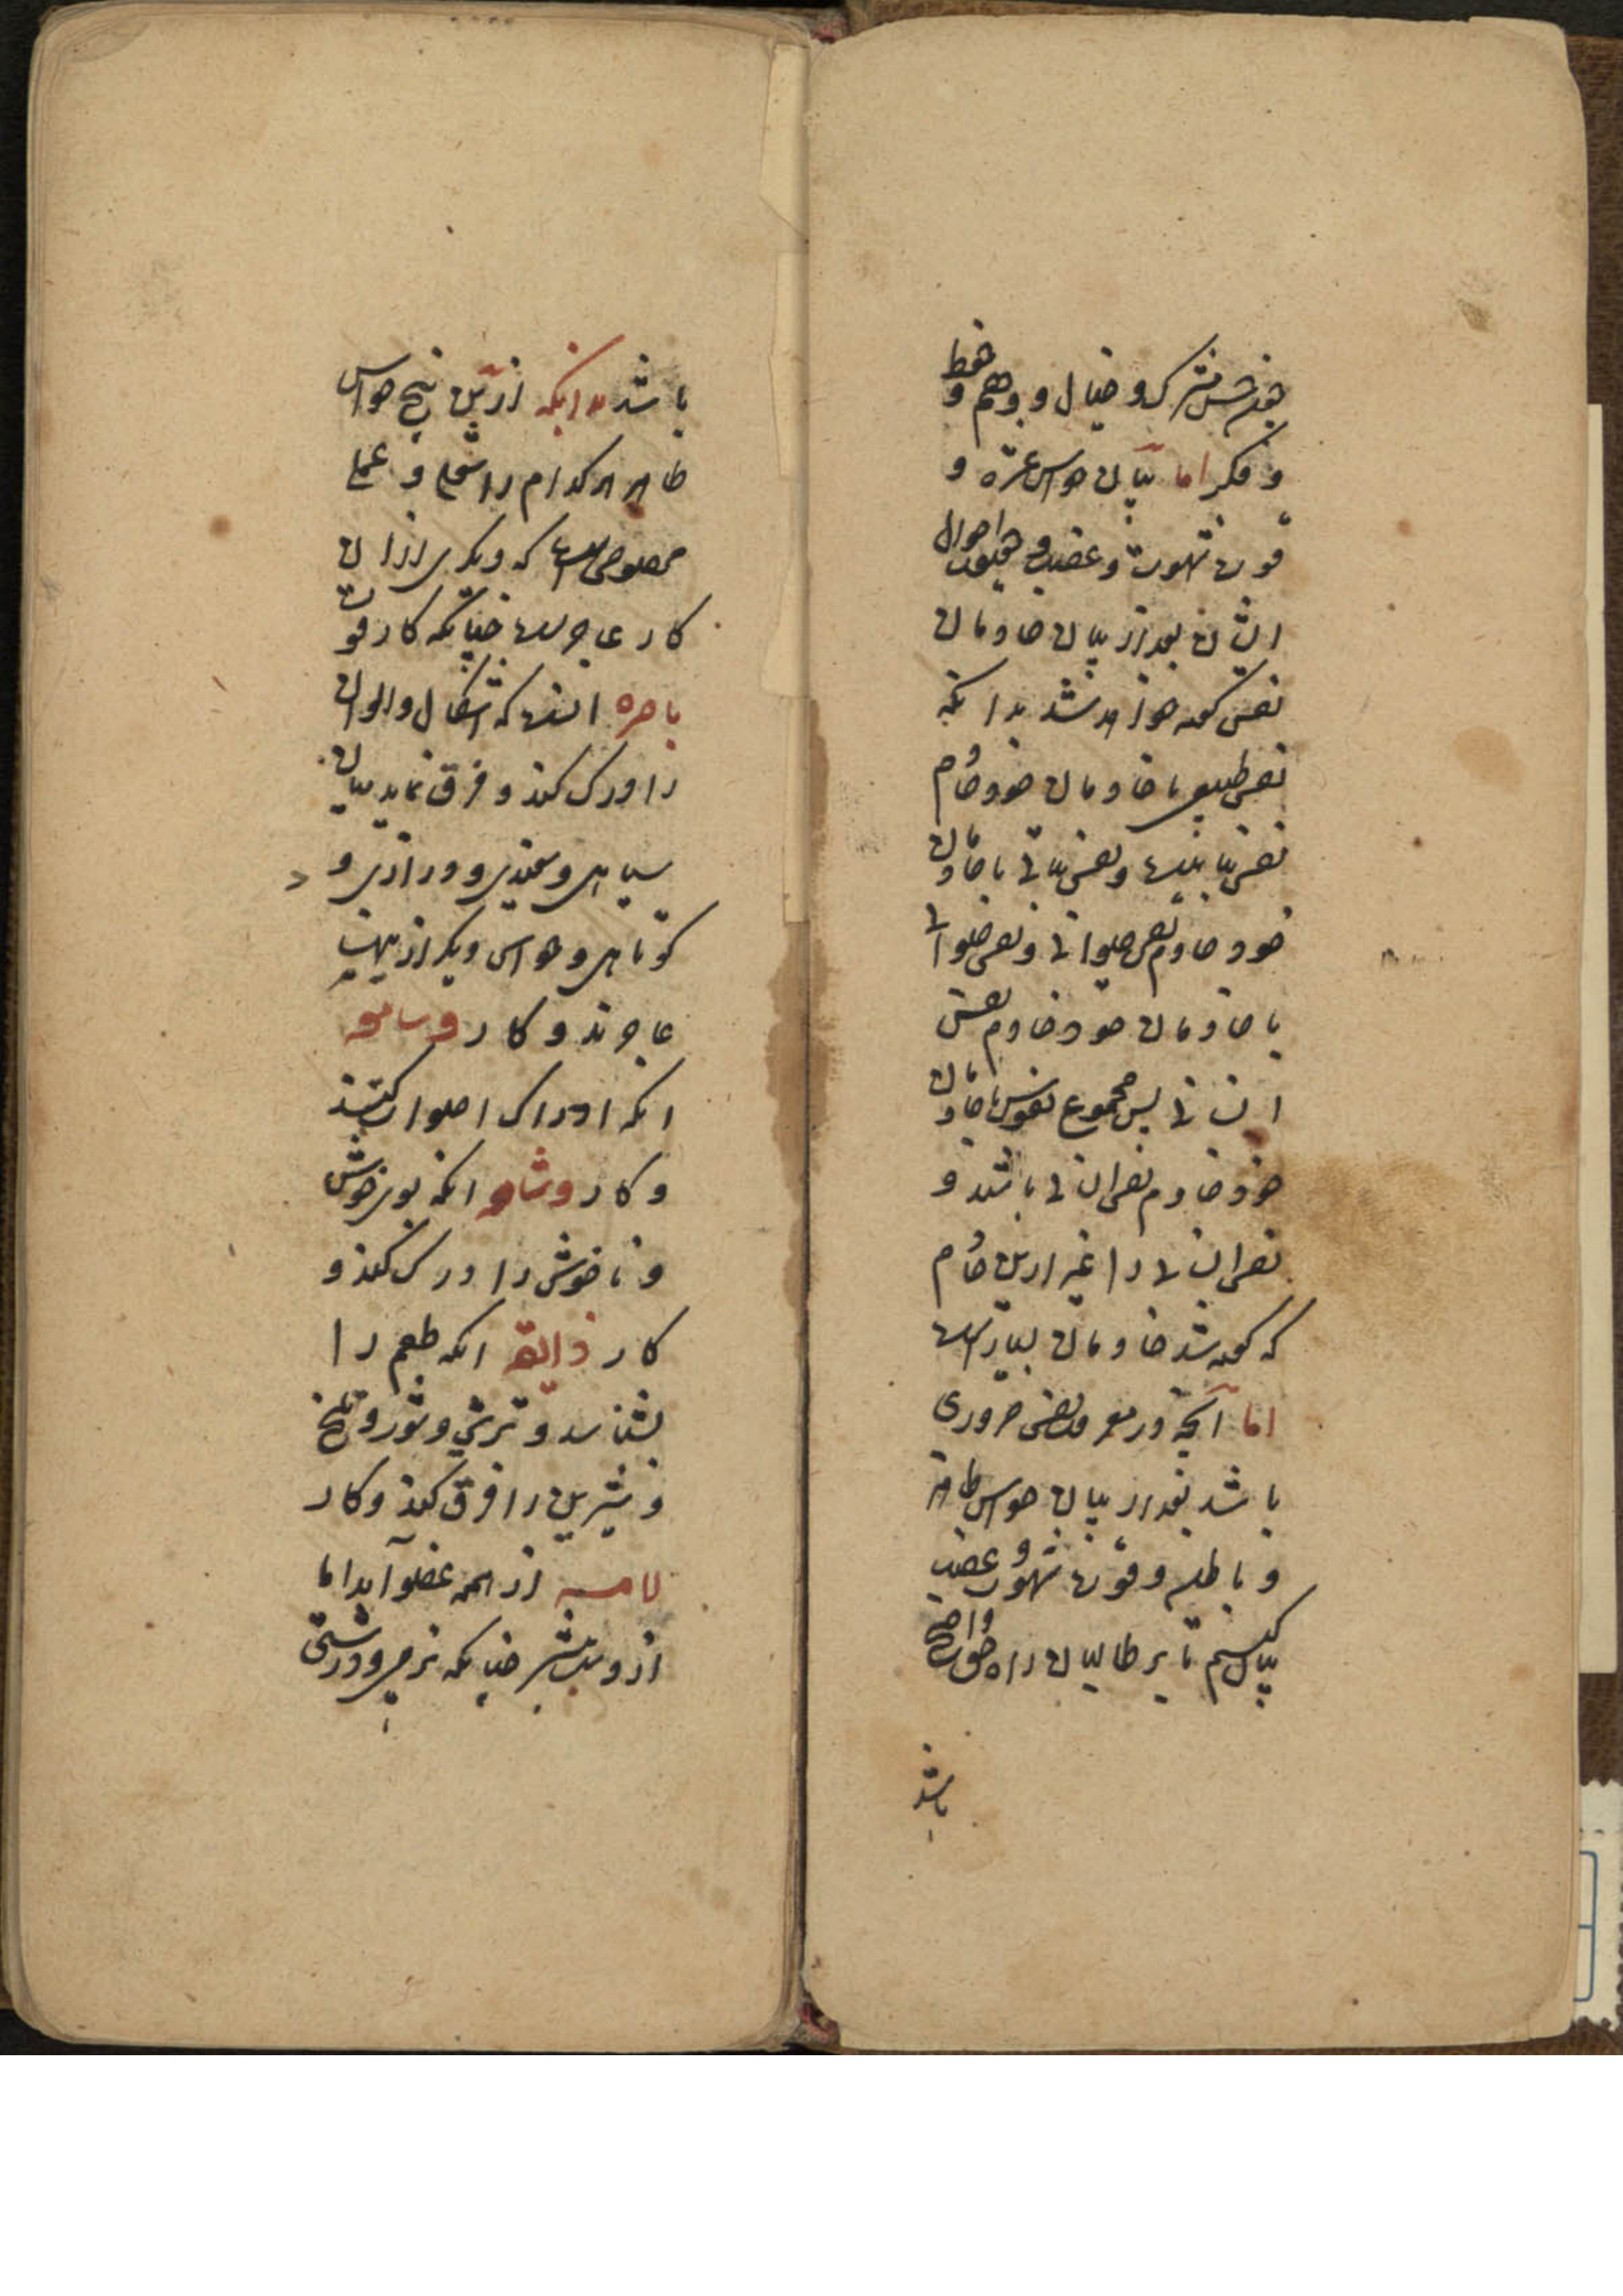 چون حس مشترک و خیال و وهم و حفظ
و فکر اما بیان حواس عشره و
قوت شهوت و غضب و احوال
ایشان بعد از بیان خادمان
نفس گفته خواهد شد بدانکه
نفس طبیعی با خادمان خود خادم
نفس نباتیست و نفس نباتی با خادمان
خود خادم نفس حیوانی و نفس حیوانی
با خادمان خود خادم نفس
انسانی پس مجموع نفوس با خادمان
خود خادم نفس انسانی باشند و
نفس انسانی را غیر ازین خادم
که گفته شد خادمان بسیار است
اما آنچه در معرفت نفس ضروری
باشد بعد از بیان حواس ظاهر
و باطنه و قوت شهوت و غضب
بیان کنیم تا بر طالبان راه حق واضح
باشد
باشد بدانکه ازین پنج حواس
ظاهر هر کدام را شغلی و عملی
مخصوص است که دیگری از آن
کار عاجز است چنانکه کار قوت
باصره آنست که اشکال و الوان
را درک کند و فرق نماید میان
سیاهی و سفیدی و درازی و
کوتاهی و حواس دیگر ازینها
عاجزند و کار سامعه
آنکه ادراک اصوات کند
و کار شامه آنکه بوی خوش
و ناخوش را درک کند و
کار ذایقه آنکه طعم را
بشناسد و ترشی و شور و تلخ
و شیرین را فرق کند و کار
لامسه از همه عضو آید اما
از دست بیشتر چنانکه نرمی و درشتی